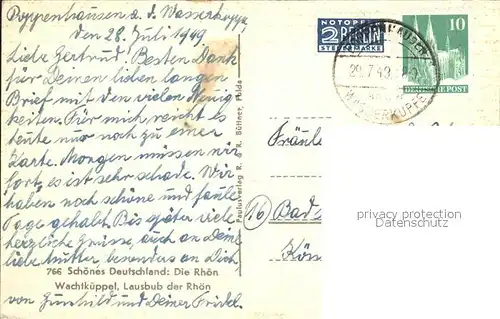 Poppenhausen a. d. Wasserkuppe,
den 28. Juli 1949
Liebe Gertrud. Besten Dank
für Deinen lieben langen
Brief mit den vielen Neuig-
keiten. Für mich reicht es
heute nur noch zu einer
Karte. Morgen müssen wir
fort, es ist sehr schade. Wir
haben noch schöne und faule
Tage gehabt. Bis später viele
herzliche Grüsse, auch an Deine
liebe Mutter besonders an Dich,
766 Schönes Deutschland: Die Rhön
Wachtküppel, Lausbub der Rhön
von Gunhild und Deiner Friedel.
Paulusverlag K. & R. Büttner, Fulda
NOTOPFER
2 BERLIN
STEUERMARKE
29.7.49
WASSERKUPPE
10
DEUTSCHE POST
Fräule
16 Bad
privacy protection
VMARKEN.COM